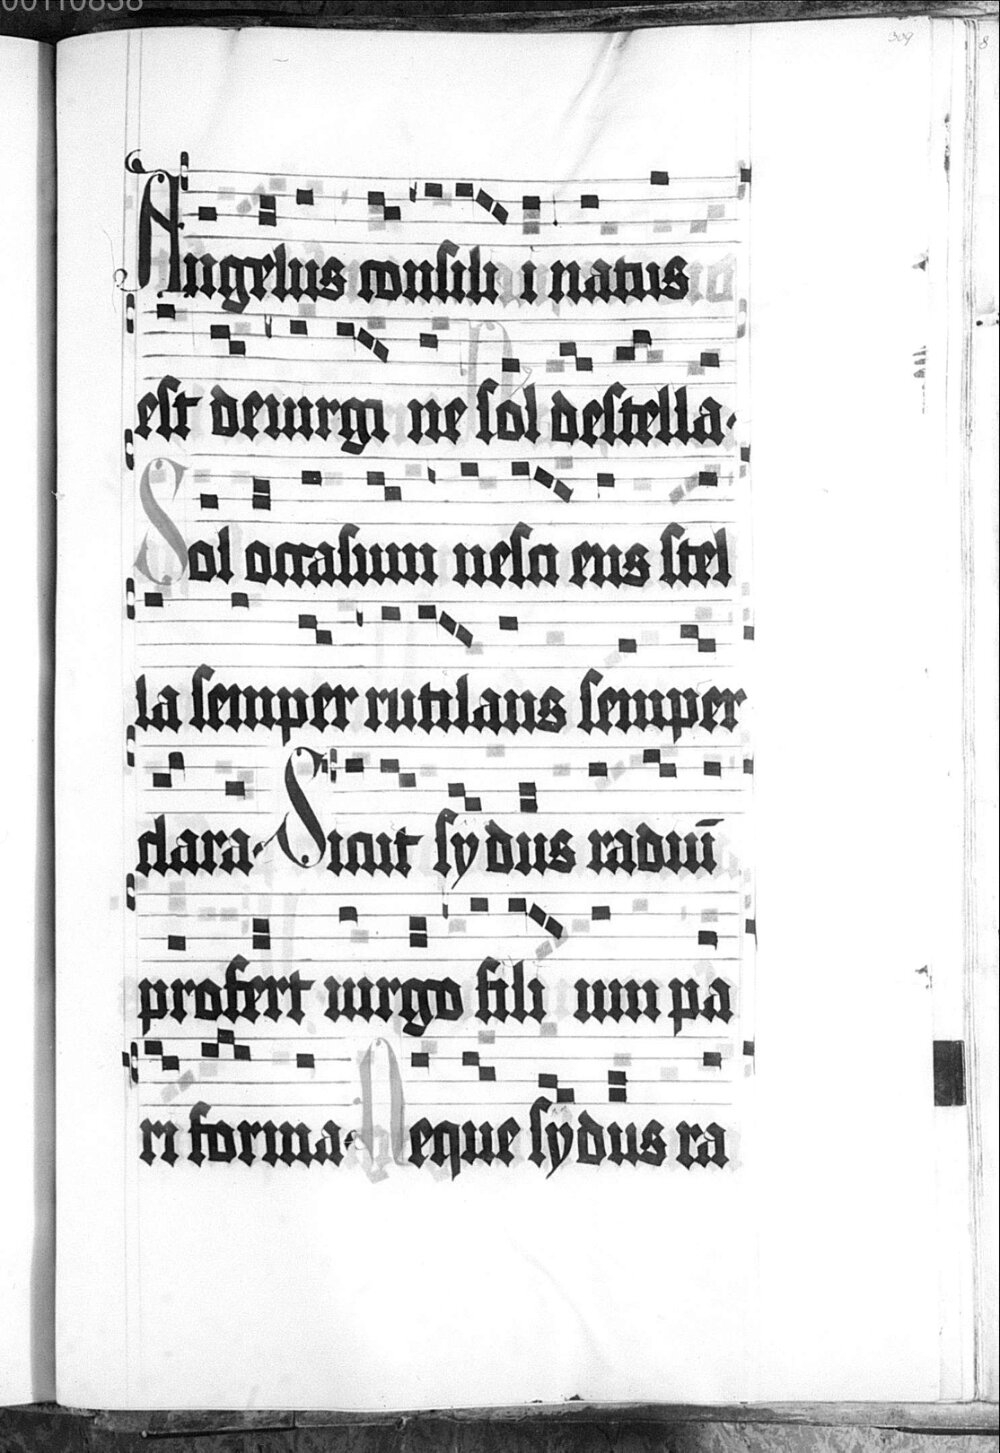 00110838
309
8
Angelus consili i natus
est deuirgi ne sol destella·
Sol occasum nesci ens stel
la semper rutilans semper
clara· Sicut sydus radiū
profert uirgo fili um pa
ri forma· Neque sydus ra